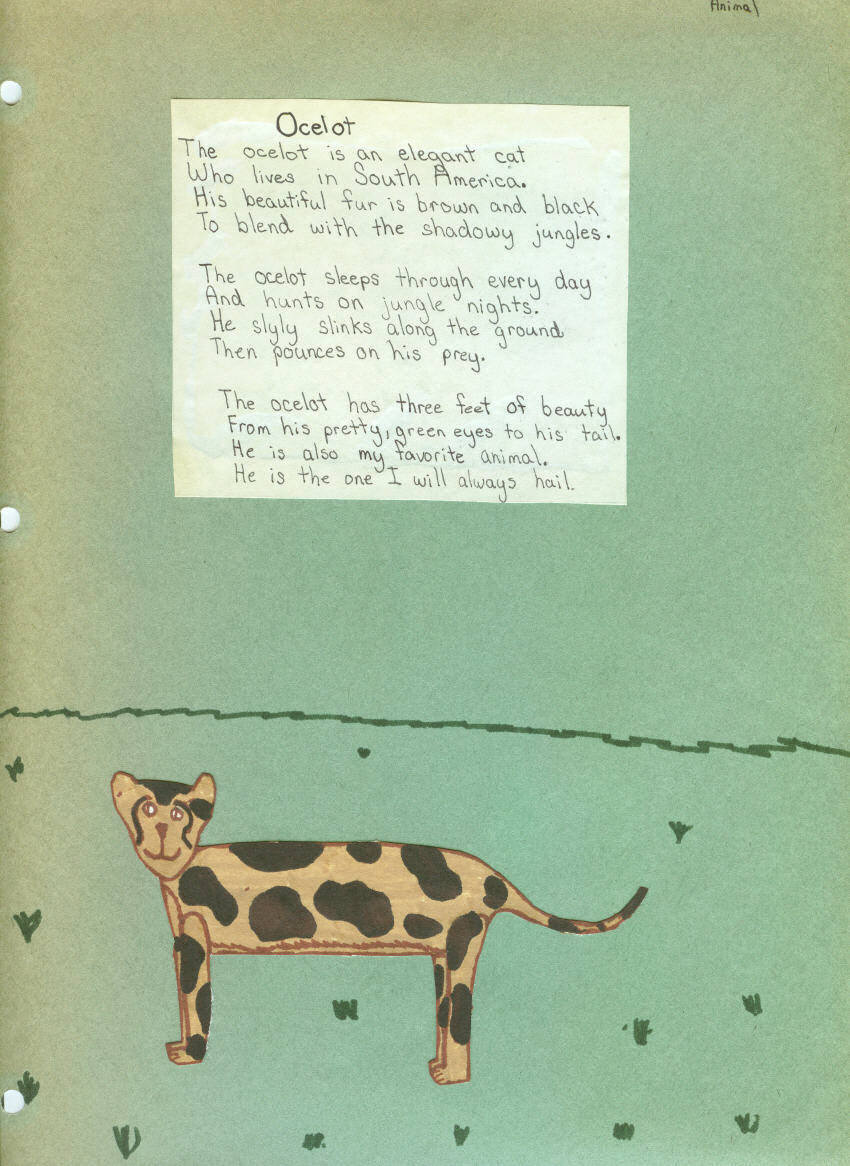 Animal
Ocelot
The ocelot is an elegant cat
Who lives in South America.
His beautiful fur is brown and black
To blend with the shadowy jungles.
The ocelot sleeps through every day
And hunts on jungle nights.
He slyly slinks along the ground
Then pounces on his prey.
The ocelot has three feet of beauty
From his pretty, green eyes to his tail.
He is also my favorite animal.
He is the one I will always hail.